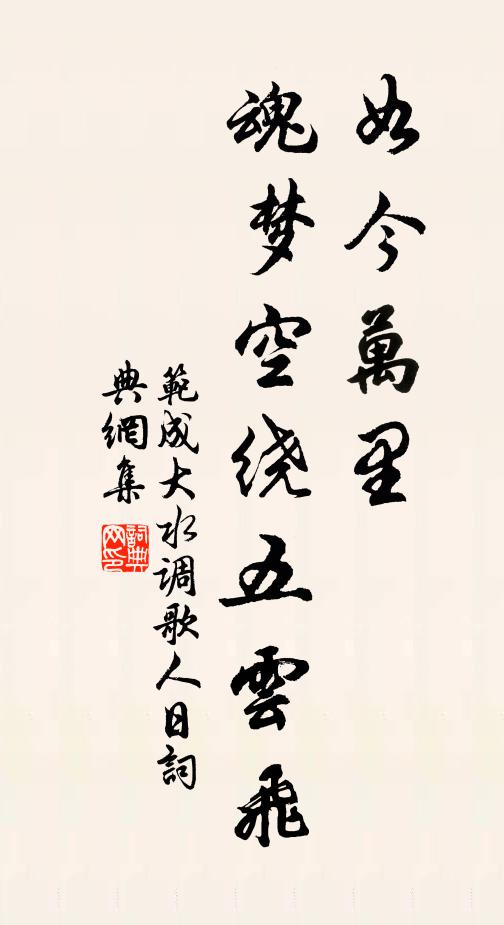 如今萬里
魂梦空绕五雲飛
範成大水调歌人日詞
典網集
詞典网印